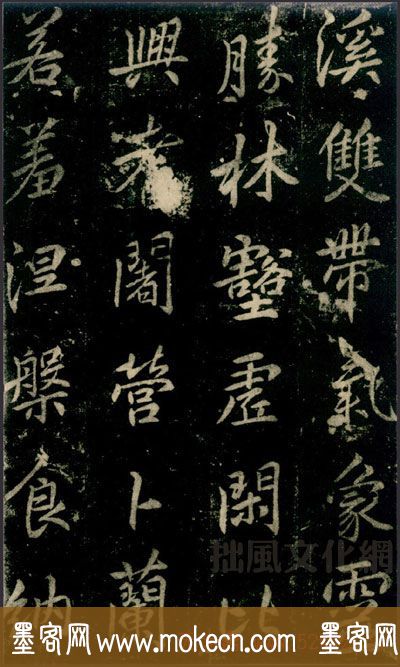 溪雙帶氣象
勝林壑虛閑
興耆闍營卜蘭
若羞涅槃食納
拙風文化網
墨客网 www.mokecn.com 墨客网